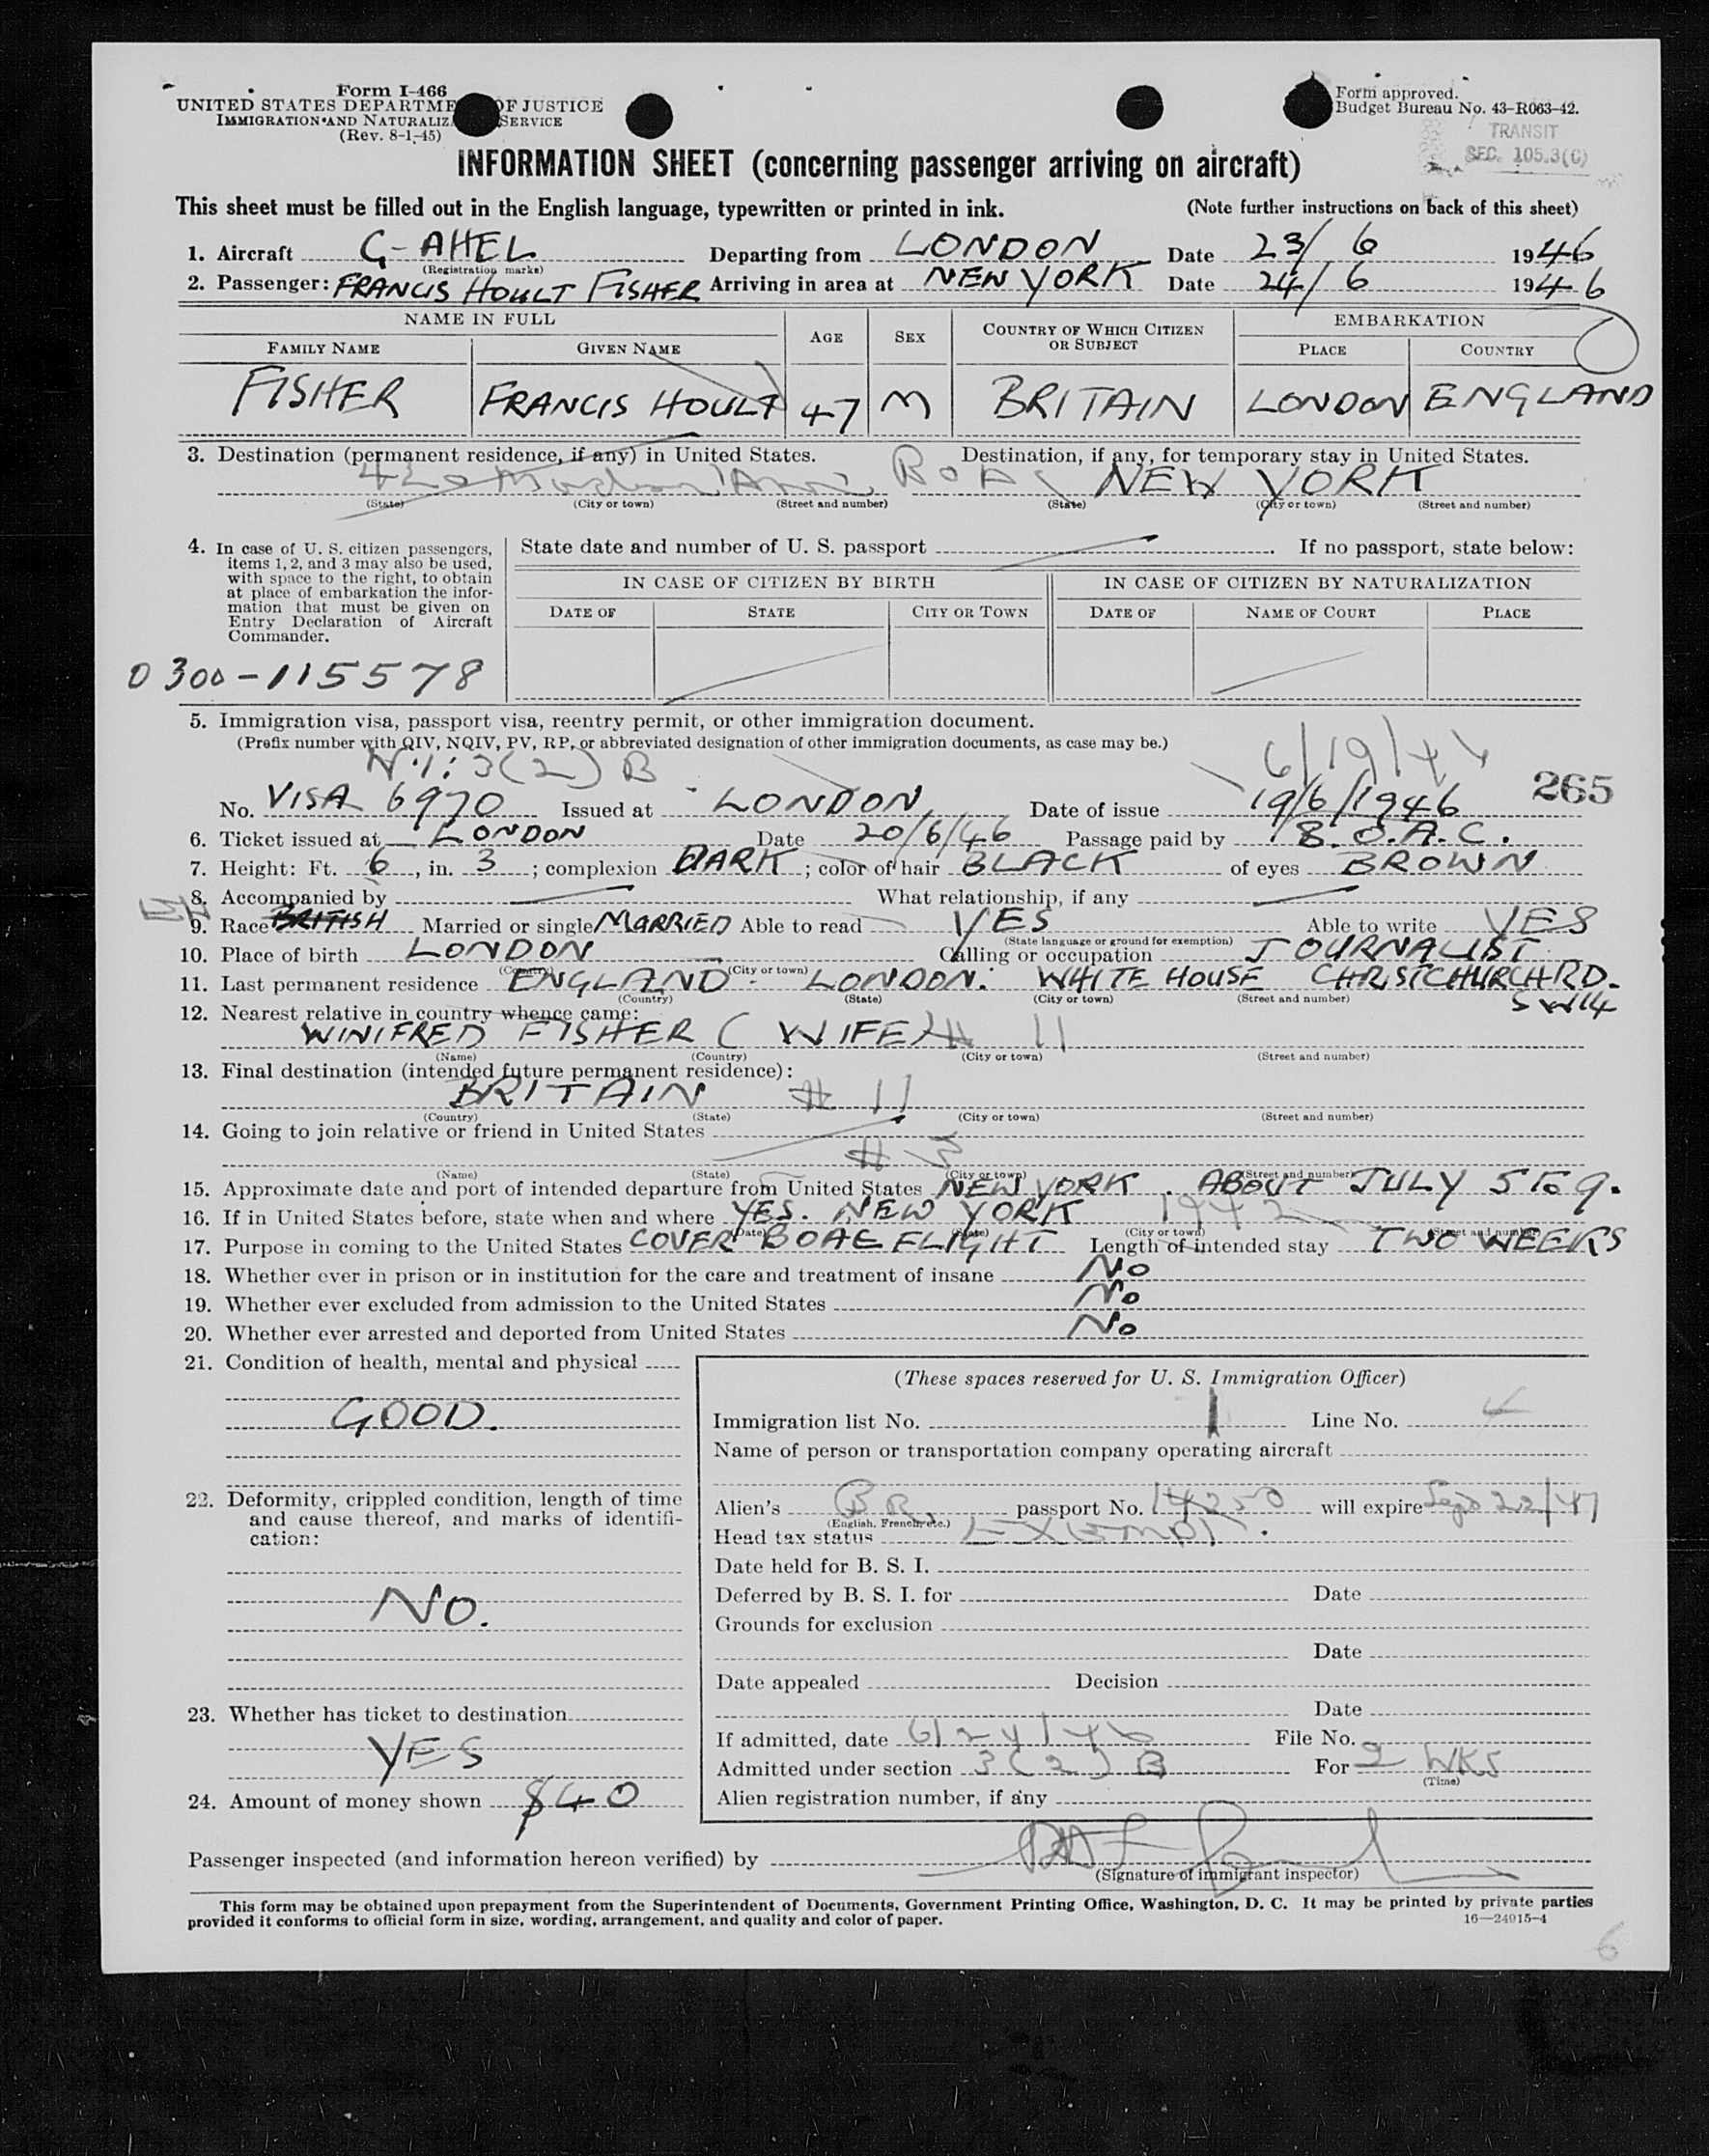 Form I-466
UNITED STATES DEPARTME OF JUSTICE
IMMIGRATION AND NATURALIZ SERVICE
(Rev. 8-1-45)
Form approved.
Budget Bureau No. 43-R063-42.
TRANSIT
SEC. 105.3(C)
INFORMATION SHEET (concerning passenger arriving on aircraft)
This sheet must be filled out in the English language, typewritten or printed in ink. (Note further instructions on back of this sheet)
1. Aircraft G-AHEL Departing from LONDON Date 23/6 1946
(Registration marks)
2. Passenger: FRANCIS HOULT FISHER Arriving in area at NEW YORK Date 24/6 1946
NAME IN FULL AGE SEX COUNTRY OF WHICH CITIZEN OR SUBJECT EMBARKATION
FAMILY NAME GIVEN NAME PLACE COUNTRY
FISHER FRANCIS HOULT 47 M BRITAIN LONDON ENGLAND
3. Destination (permanent residence, if any) in United States. Destination, if any, for temporary stay in United States.
420 NEW YORK
(State) (City or town) (Street and number) (State) (City or town) (Street and number)
4. In case of U. S. citizen passengers,
items 1, 2, and 3 may also be used,
with space to the right, to obtain
at place of embarkation the infor-
mation that must be given on
Entry Declaration of Aircraft
Commander.
State date and number of U. S. passport . If no passport, state below:
IN CASE OF CITIZEN BY BIRTH IN CASE OF CITIZEN BY NATURALIZATION
DATE OF STATE CITY OR TOWN DATE OF NAME OF COURT PLACE
0300-115578
5. Immigration visa, passport visa, reentry permit, or other immigration document.
(Prefix number with QIV, NQIV, PV, RP, or abbreviated designation of other immigration documents, as case may be.)
3(2) B 6/19/46
265
No. VISA 6970 Issued at LONDON Date of issue 19/6/1946
6. Ticket issued at LONDON Date 20/6/46 Passage paid by B.O.A.C.
7. Height: Ft. 6, in. 3; complexion DARK; color of hair BLACK of eyes BROWN
8. Accompanied by What relationship, if any
9. Race BRITISH Married or single MARRIED Able to read YES Able to write YES
(State language or ground for exemption)
10. Place of birth LONDON Calling or occupation JOURNALIST
(Country) (City or town)
11. Last permanent residence ENGLAND - LONDON. WHITE HOUSE CHRISTCHURCH RD.
(Country) (State) (City or town) (Street and number) SW14
12. Nearest relative in country whence came:
WINIFRED FISHER (WIFE) # 11
(Name) (Country) (City or town) (Street and number)
13. Final destination (intended future permanent residence):
BRITAIN # 11
(Country) (State) (City or town) (Street and number)
14. Going to join relative or friend in United States
# 3
(Name) (State) (City or town) (Street and number)
15. Approximate date and port of intended departure from United States NEW YORK. ABOUT JULY 5 TO 9.
16. If in United States before, state when and where YES. NEW YORK 1942
(Date) (State) (City or town) (Street and number)
17. Purpose in coming to the United States COVER BOAC FLIGHT Length of intended stay TWO WEEKS
18. Whether ever in prison or in institution for the care and treatment of insane NO
19. Whether ever excluded from admission to the United States NO
20. Whether ever arrested and deported from United States NO
21. Condition of health, mental and physical
GOOD.
22. Deformity, crippled condition, length of time
and cause thereof, and marks of identifi-
cation:
NO.
23. Whether has ticket to destination
YES
24. Amount of money shown $40
(These spaces reserved for U. S. Immigration Officer)
Immigration list No. 1 Line No. 4
Name of person or transportation company operating aircraft
Alien's BR. passport No. 14250 will expire
(English, French, etc.)
Head tax status EXEMPT.
Date held for B. S. I.
Deferred by B. S. I. for Date
Grounds for exclusion
Date
Date appealed Decision
Date
If admitted, date 6/24/46 File No.
Admitted under section 3(2) B For 2 WKS
(Time)
Alien registration number, if any
Passenger inspected (and information hereon verified) by
(Signature of immigrant inspector)
This form may be obtained upon prepayment from the Superintendent of Documents, Government Printing Office, Washington, D. C. It may be printed by private parties
provided it conforms to official form in size, wording, arrangement, and quality and color of paper.
16—24015-4
6